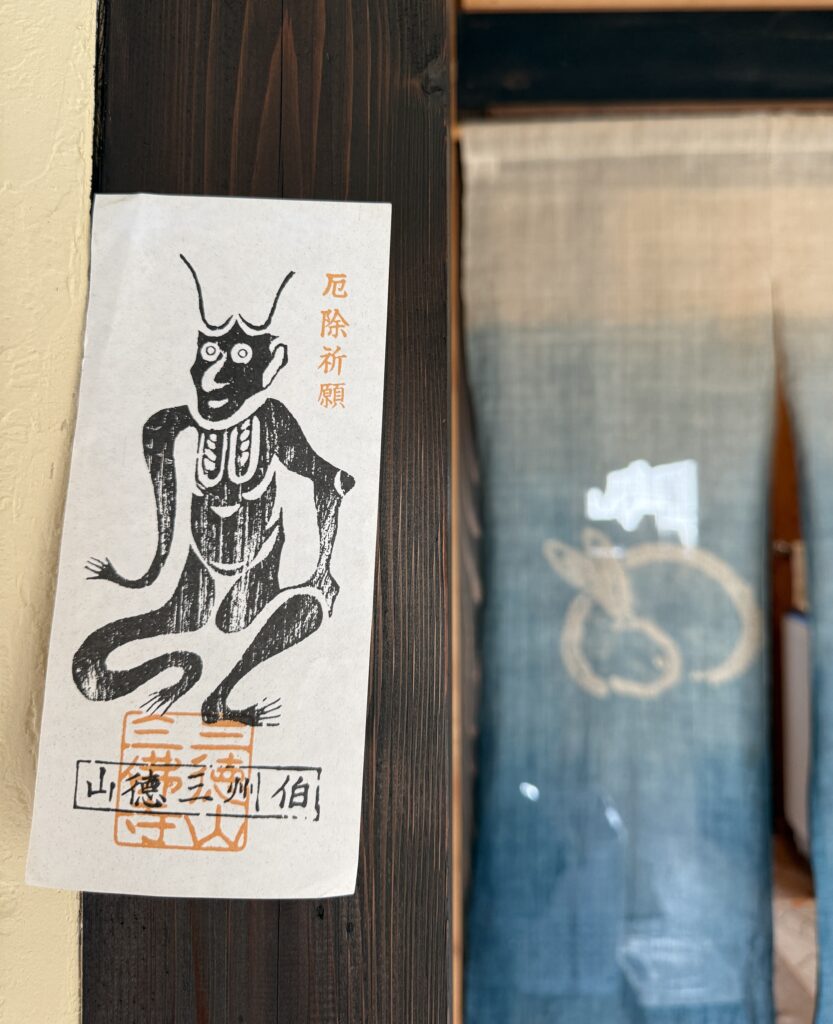 厄除祈願
伯州三德山
三徳山
三佛寺